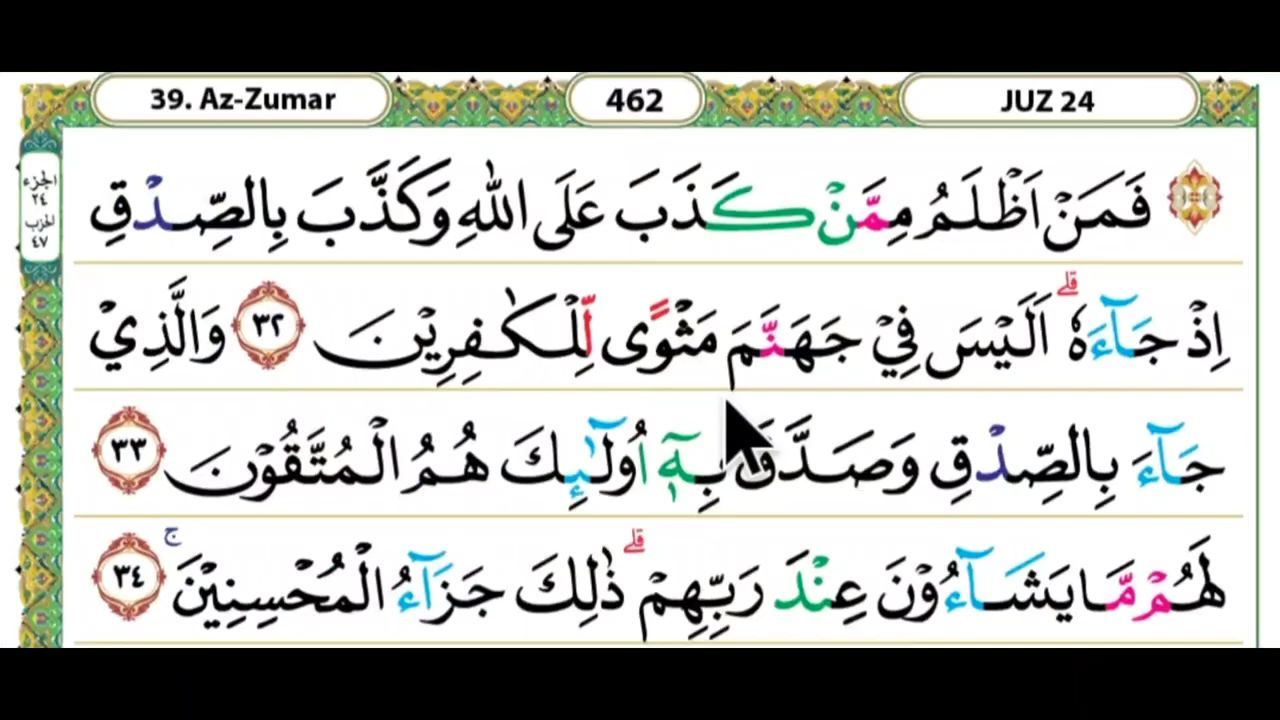 39. Az-Zumar
462
JUZ 24
الجزء
٢٤
الحزب
٤٧
فَمَنْ اَظْلَمُ مِمَّنْ كَذَبَ عَلَى اللّٰهِ وَكَذَّبَ بِالصِّدْقِ
اِذْ جَاۤءَهٗ ۗ اَلَيْسَ فِيْ جَهَنَّمَ مَثْوًى لِّلْكٰفِرِيْنَ ٣٢ وَالَّذِيْ
جَاۤءَ بِالصِّدْقِ وَصَدَّقَ بِهٖٓ اُولٰۤىِٕكَ هُمُ الْمُتَّقُوْنَ ٣٣
لَهُمْ مَّا يَشَاۤءُوْنَ عِنْدَ رَبِّهِمْ ۗ ذٰلِكَ جَزَاۤءُ الْمُحْسِنِيْنَ ۚ ٣٤